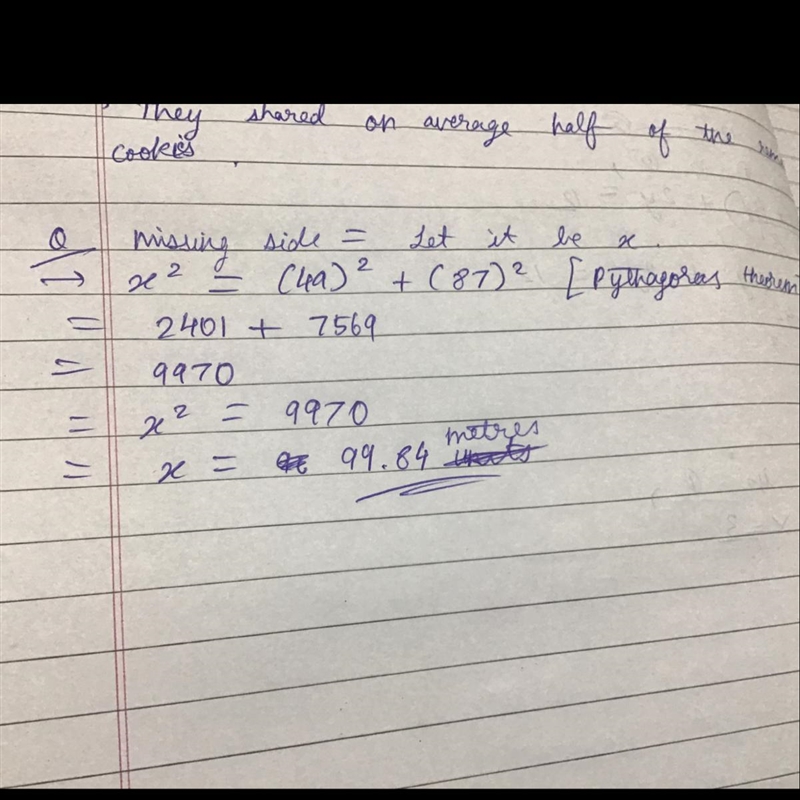 They shared on average half of the
cookies.
Q missing side = Let it be x.
→ x² = (49)² + (87)² [Pythagoras theorem
= 2401 + 7569
= 9970
= x² = 9970
= x = 99.84 metres